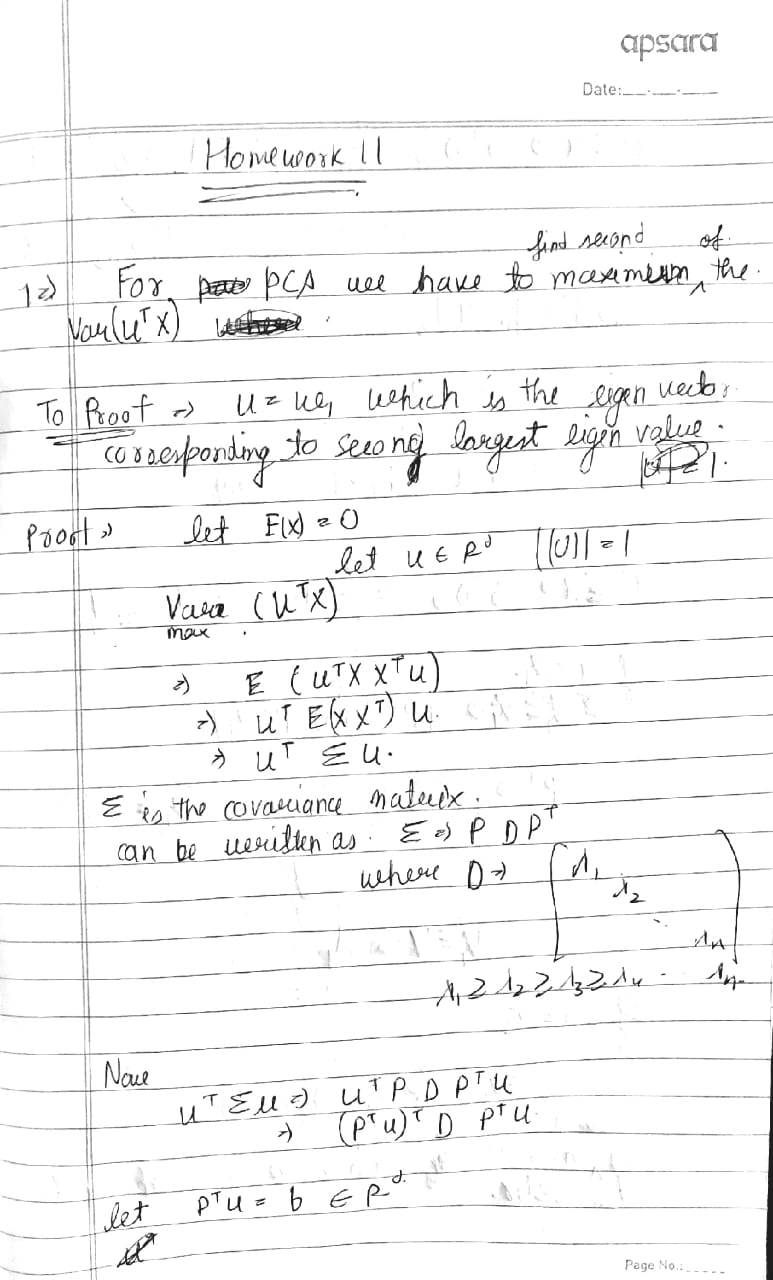 apsara
Date:__.__.__
Homework 11
find second of
1⇒) For PCA we have to maximum, the
Var(UᵀX)
To Proof ⇒ U = u₁ which is the eigen vector
corresponding to second largest eigen value.
Proof ⇒ let E(X) = 0
let u ∈ Rᵈ ||U|| = 1
Var (UᵀX)
max
⇒ E (UᵀX XᵀU)
⇒ Uᵀ E(X Xᵀ) U.
⇒ Uᵀ Σ U.
Σ is the covariance matrix.
can be written as. Σ ⇒ P D Pᵀ
where D ⇒ [λ₁
λ₂
λn]
λ₁ ≥ λ₂ ≥ λ₃ ≥ λ₄ . λn
Now
Uᵀ Σ U ⇒ Uᵀ P D Pᵀ U
⇒ (Pᵀ U)ᵀ D Pᵀ U
let Pᵀ U = b ∈ Rᵈ.
Page No.:_____